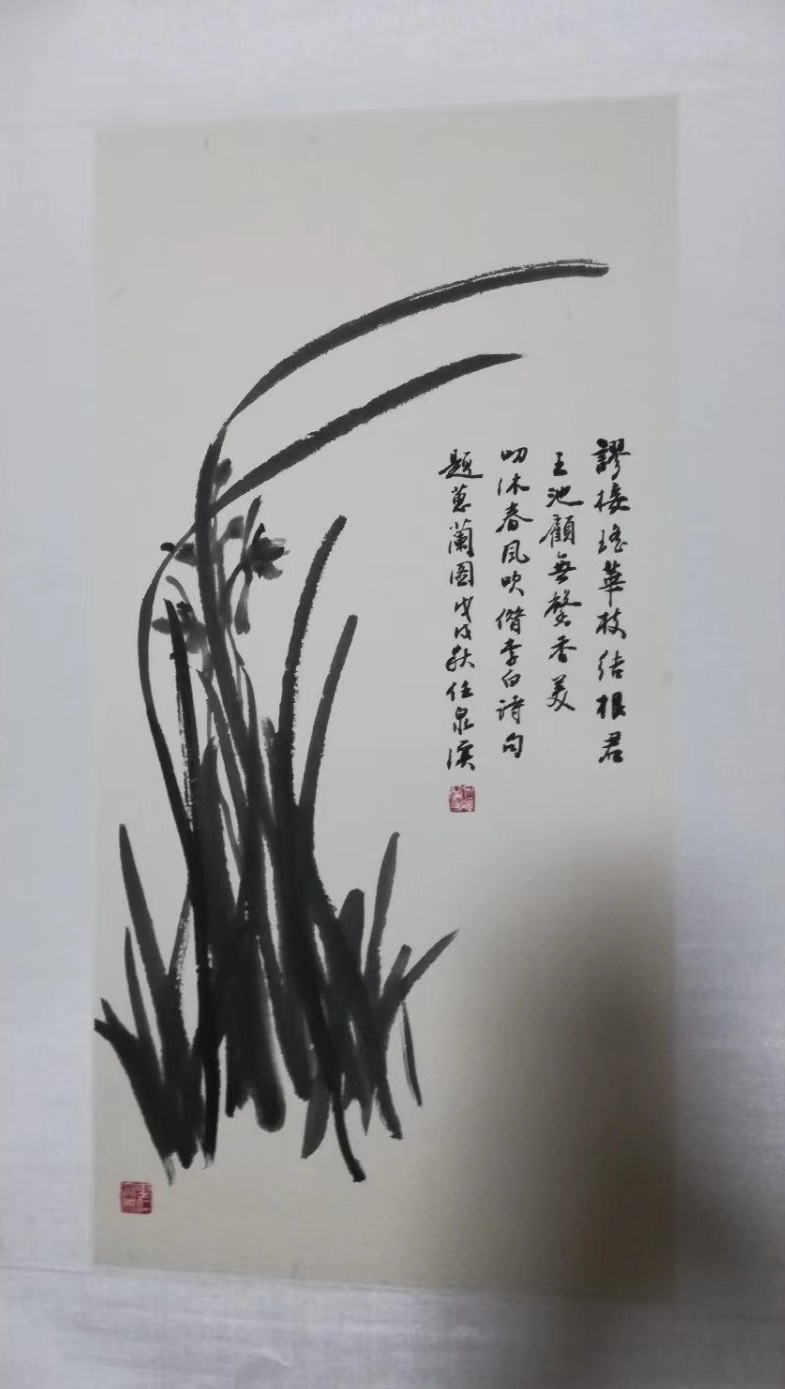 謬接瑤華枝結根君
王池顧無馨香美
叨沐春風吹借李白詩句
題蕙蘭圖戊戌秋任泉溪